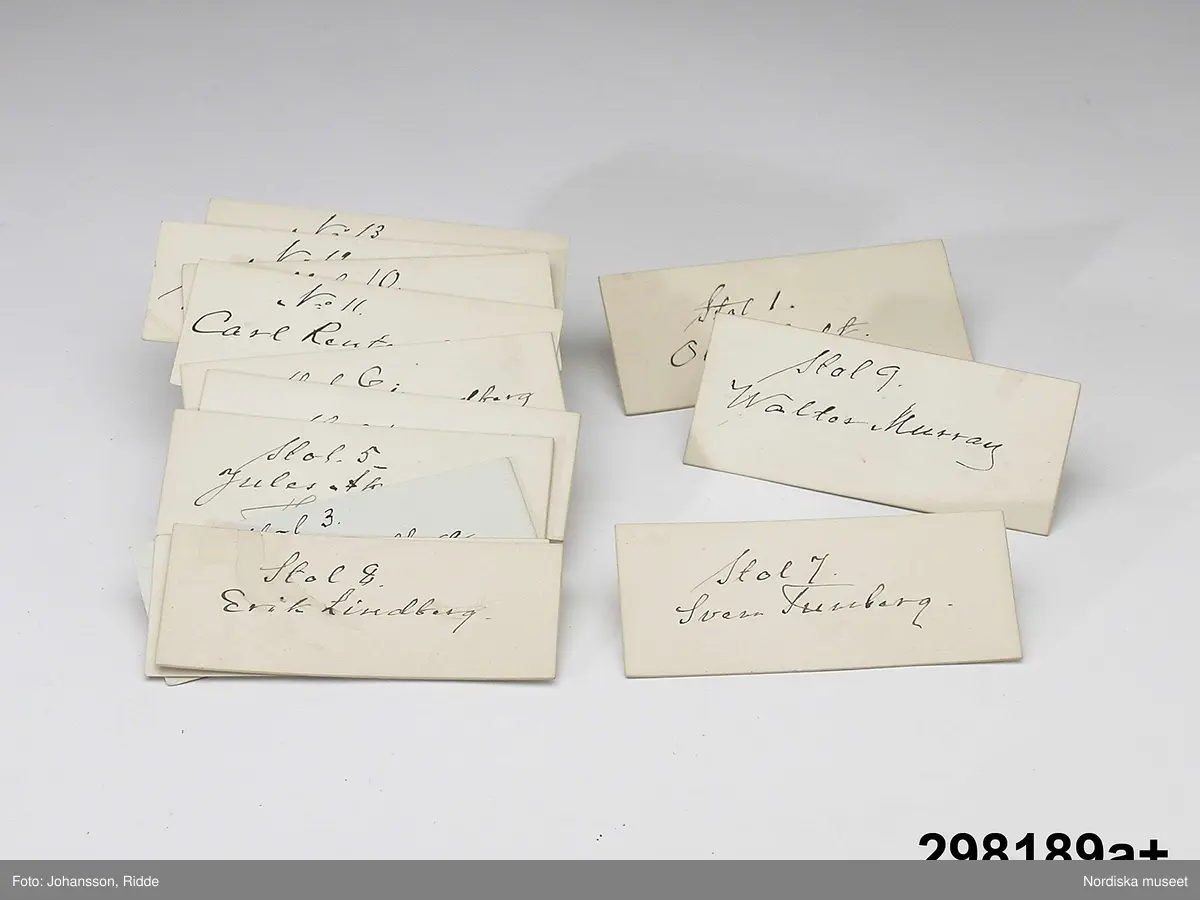 No 13
No 12
10.
No 11.
Carl Reut
6.
dberg
Stol. 5
Jules
3.
Stol 8.
Erik Lindberg.
Stol 1.
Stol 9.
Walter Murray
Stol 7.
Sven Tunberg.
298189a+
Foto: Johansson, Ridde
Nordiska museet